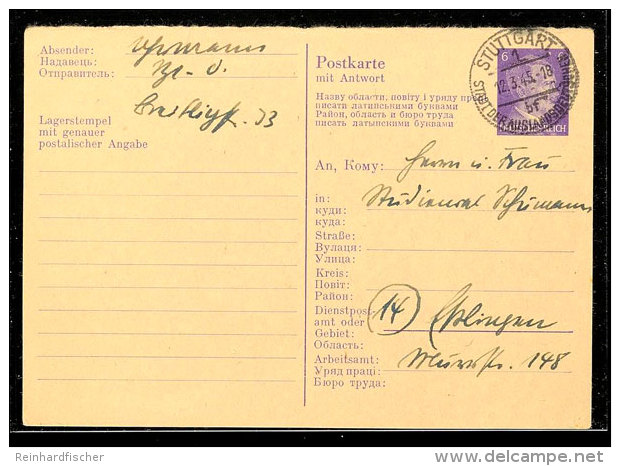 Absender:
Надавець:
Отправитель:
Lagerstempel
mit genauer
postalischer Angabe
Postkarte
mit Antwort
Назву области, повіту і уряду праці
писати латинськими буквами
Район, область и бюро труда
писать латынскими буквами
STUTTGART
12.3.45.-18
STADT DER AUSLANDSDEUTSCHEN
An, Кому: Herrn u. Frau
in: Studienrat Schumann
куди:
куда:
Straße:
Вулаця:
Улица:
Kreis:
Повіт:
Район:
Dienstpost-
amt oder (14) Esslingen
Gebiet:
Область:
Arbeitsamt: 148
Уряд праці:
Бюро труда:
Reinhardfischer
www.delcampe.net